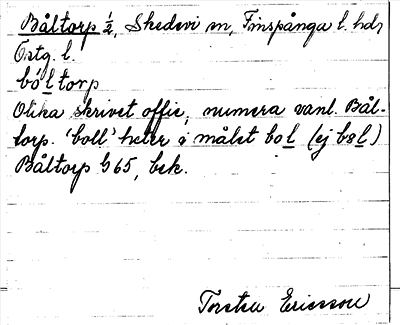 Båltorp 1/2, Skedevi sn, Finspånga l. hd,
Östg. l.
bóltorp
Olika skrivet offic., numera vanl. Bål-
torp. 'boll' heter i målet bol (ej bål)
Båltorp G65, bek.
Torsten Ericsson